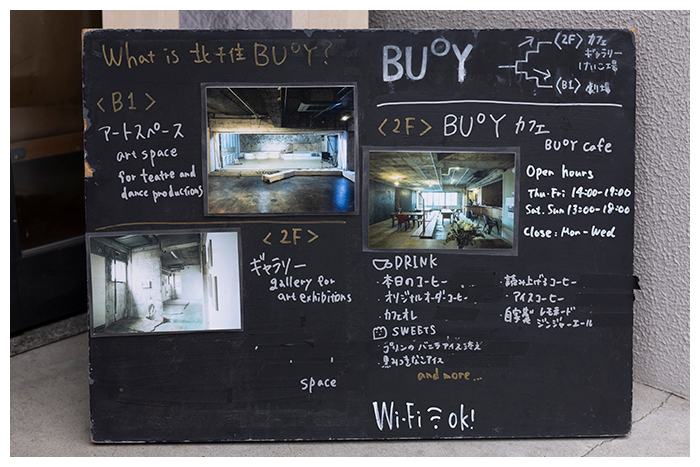 What is 北千住 BUoY?
<B1>
アートスペース
art space
for teatre and
dance productions
<2F>
ギャラリー
gallery for
art exhibitions
space
BUoY
<2F> カフェ
ギャラリー
けいこ場
<B1> 劇場
<2F> BUoY カフェ
BUoY cafe
Open hours
Thu.Fri 14:00-19:00
Sat.Sun 13:00-18:00
Close: Mon-Wed
DRINK
・本日のコーヒー
・オリジナルオーダーコーヒー
・カフェオレ
・読み上げるコーヒー
アイスコーヒー
・自家製 レモネード
ジンジャーエール
SWEETS
・プリンのバニラアイス添え
・黒みつきなこアイス
and more...
Wi-Fi ok!